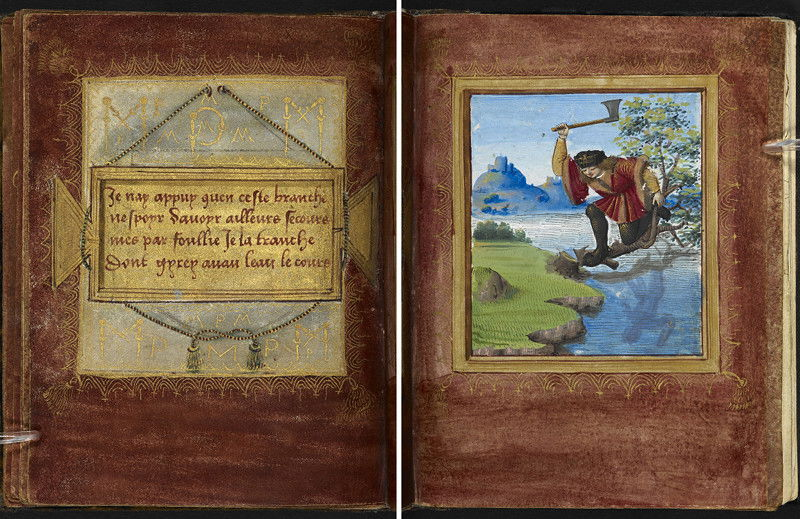 Je nay appuy quen ceste branche
nespoyr davoyr ailleurs secours
mes par foullie Je la tranche
Dont gyrey auau leau le cours